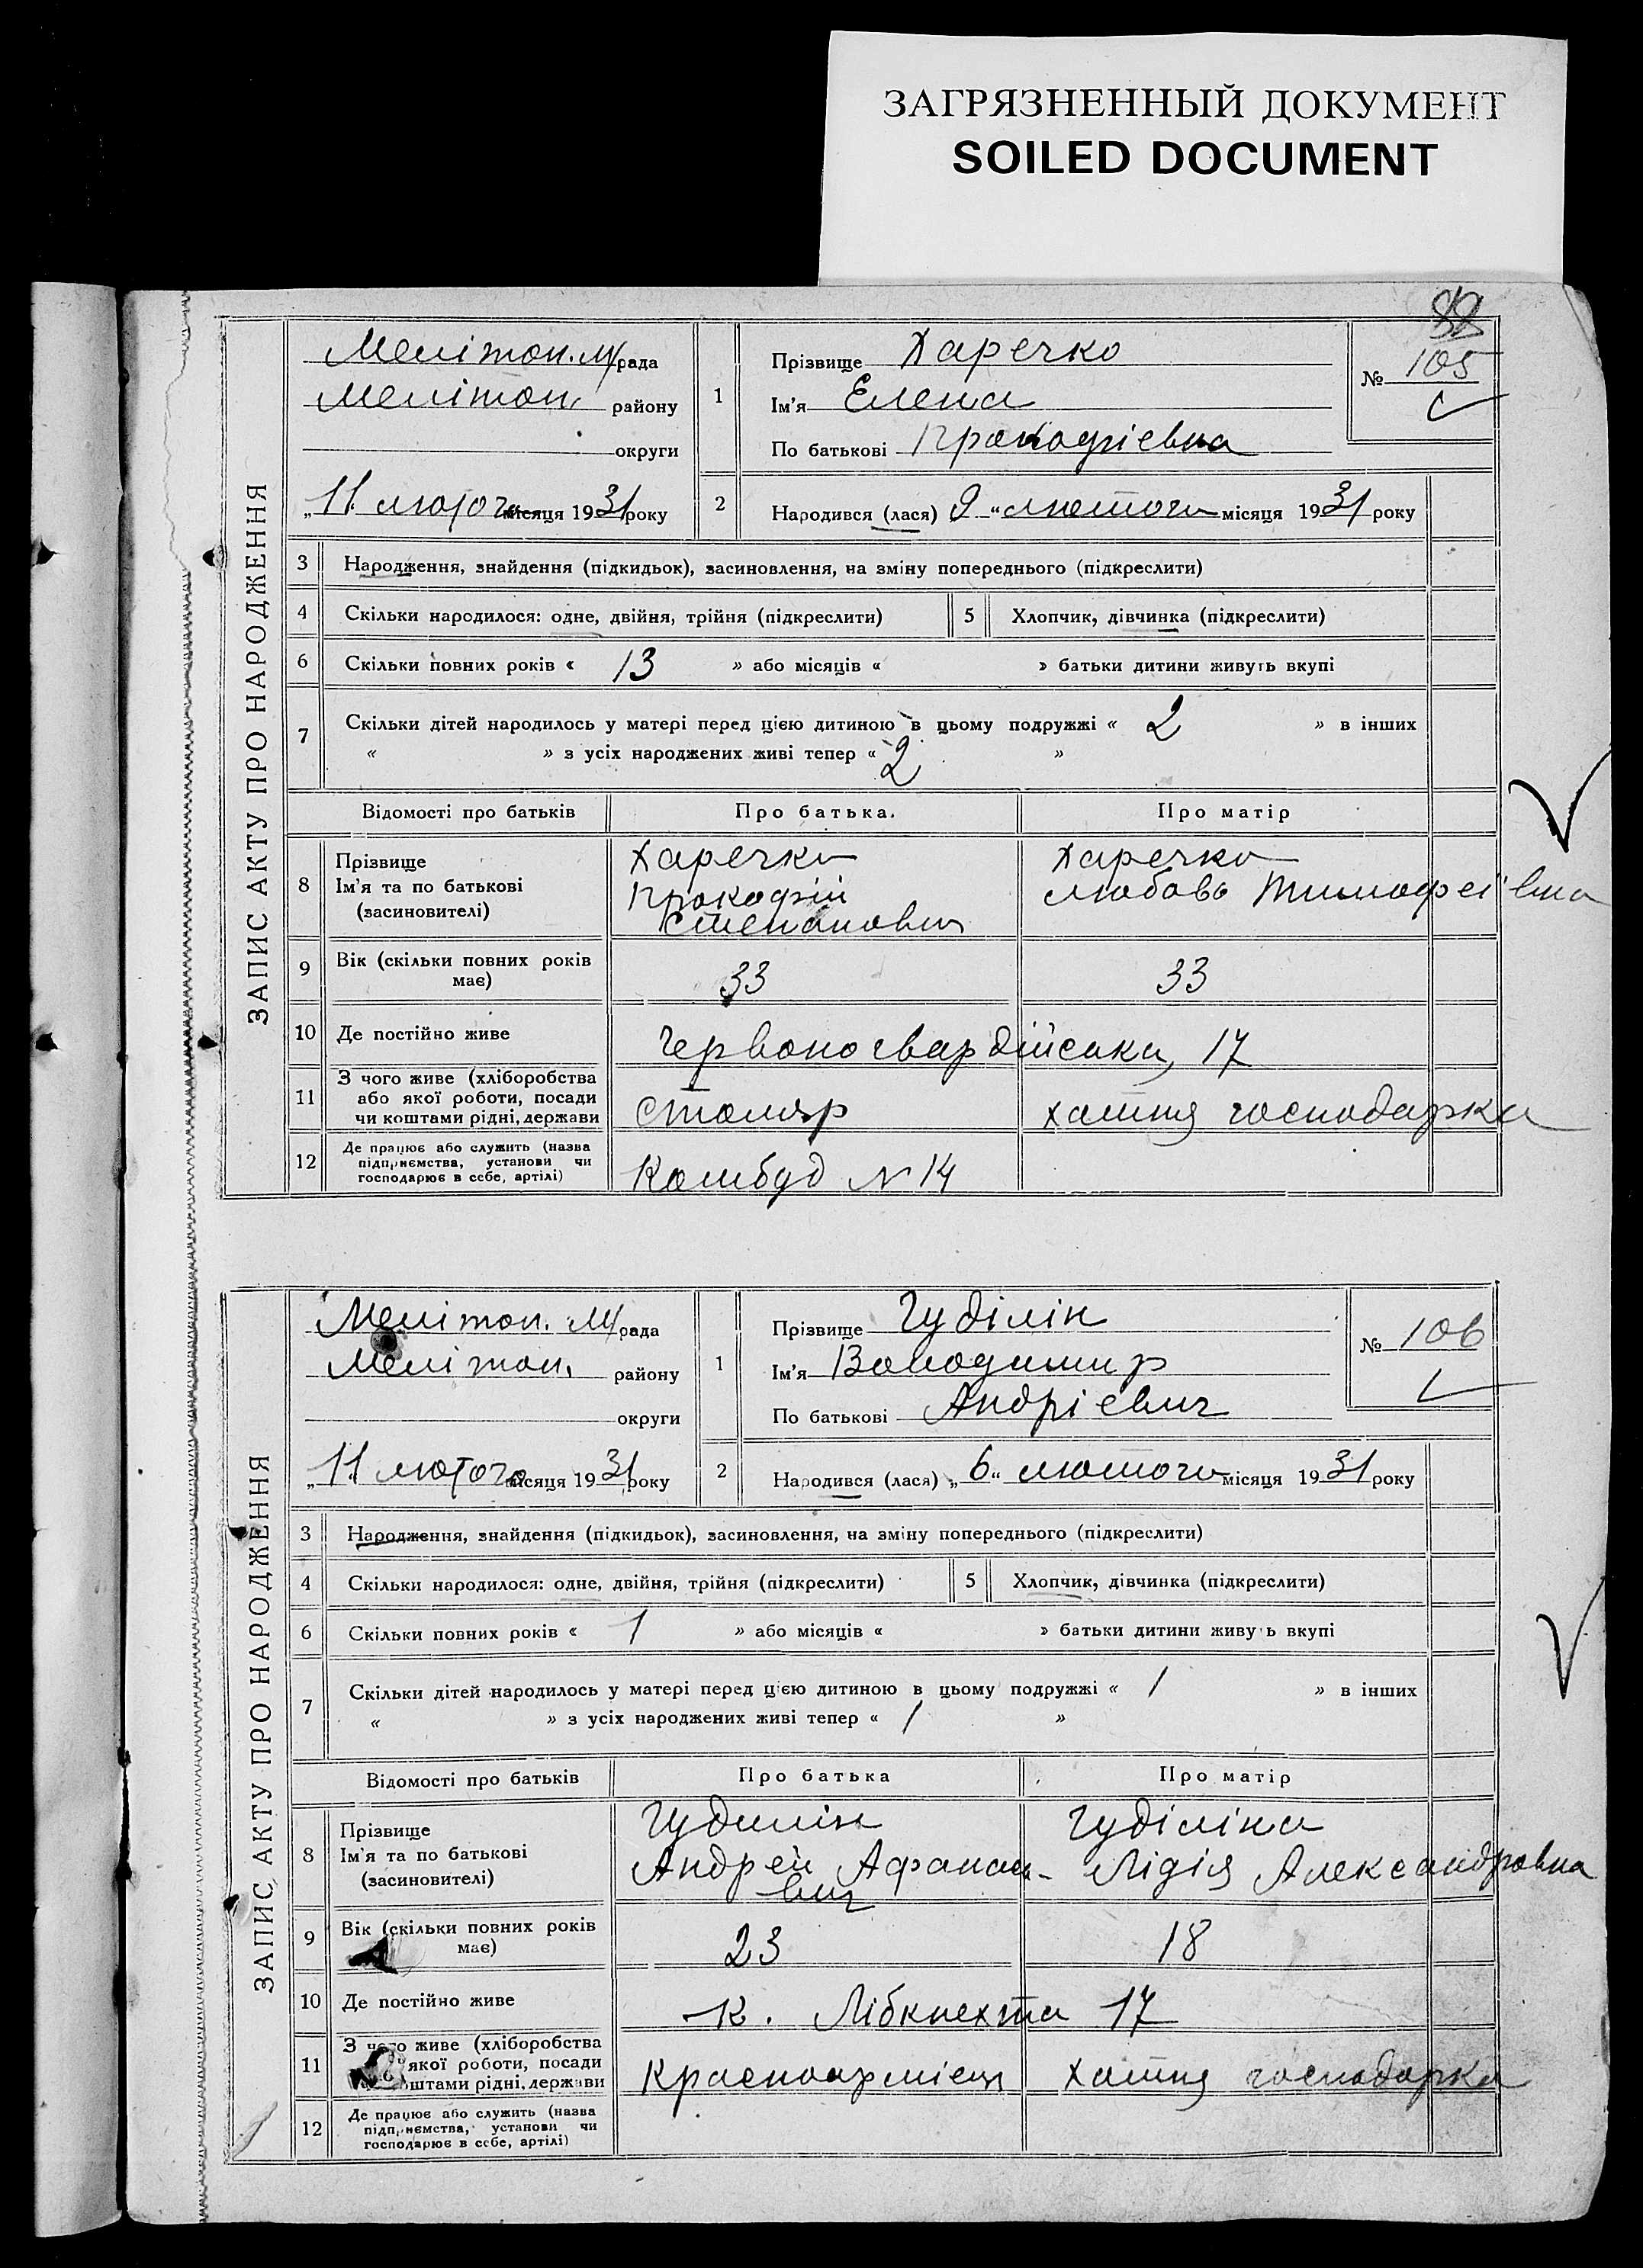 ЗАГРЯЗНЕННЫЙ ДОКУМЕНТ
SOILED DOCUMENT
88
ЗАПИС АКТУ ПРО НАРОДЖЕННЯ
Мелітоп. М/рада
Мелітоп. району
округи
„11 лютого місяця 1931 року
1
Прізвище Харечко
Ім'я Елена
По батькові Прокофієвна
№ 105
2
Народився (лася) 9 “ лютого місяця 1931 року
3 Народження, знайдення (підкидьок), засиновлення, на зміну попереднього (підкреслити)
4 Скільки народилося: одне, двійня, трійня (підкреслити) 5 Хлопчик, дівчинка (підкреслити)
6 Скільки повних років « 13 » або місяців « » батьки дитини живуть вкупі
7 Скільки дітей народилось у матері перед цією дитиною в цьому подружжі « 2 » в інших
« » з усіх народжених живі тепер « 2 »
Відомості про батьків Про батька. Про матір
8 Прізвище
Ім'я та по батькові
(засиновителі)
Харечко
Прокофій
Степанович
Харечко
Любовь Тимофеївна
9 Вік (скільки повних років
має)
33 33
10 Де постійно живе Червоногвардійська, 17
11 З чого живе (хліборобства
або якої роботи, посади
чи коштами рідні, держави
столяр хатня господарка
12 Де працює або служить (назва
підприємства, установи чи
господарює в себе, артілі)
Комбуд N 14
ЗАПИС АКТУ ПРО НАРОДЖЕННЯ
Мелітоп. М/рада
Мелітоп. району
округи
„11 лютого місяця 1931 року
1
Прізвище Гуділін
Ім'я Володимир
По батькові Андрієвич
№ 106
2
Народився (лася) „6“ лютого місяця 1931 року
3 Народження, знайдення (підкидьок), засиновлення, на зміну попереднього (підкреслити)
4 Скільки народилося: одне, двійня, трійня (підкреслити) 5 Хлопчик, дівчинка (підкреслити)
6 Скільки повних років « 1 » або місяців « » батьки дитини живуть вкупі
7 Скільки дітей народилось у матері перед цією дитиною в цьому подружжі « 1 » в інших
« » з усіх народжених живі тепер « 1 »
Відомості про батьків Про батька Про матір
8 Прізвище
Ім'я та по батькові
(засиновителі)
Гудилін
Андрей Афанас-
вич
Гуділіна
Лідія Александровна
9 Вік (скільки повних років
має)
23 18
10 Де постійно живе К. Лібкнехта 17
11 З чого живе (хліборобства
якої роботи, посади
коштами рідні, держави
Красноармієц хатня господарка
12 Де працює або служить (назва
підприємства, установи чи
господарює в себе, артілі)